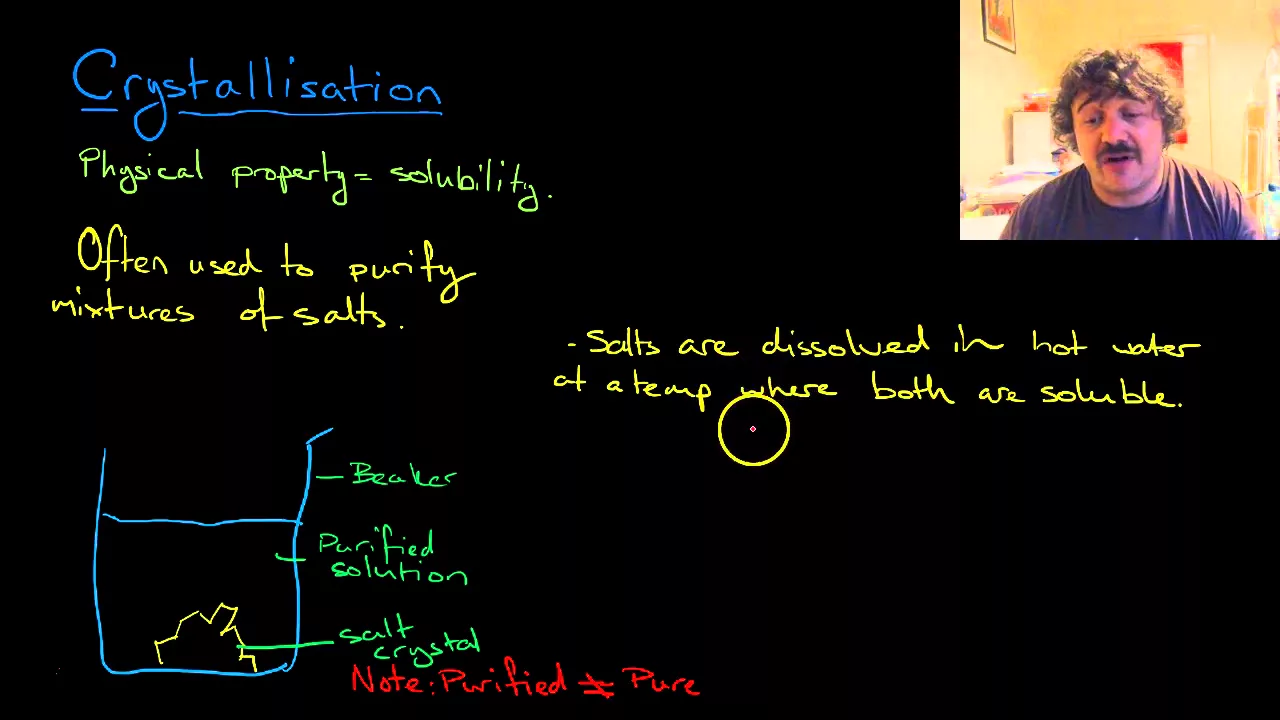 Crystallisation
Physical property = solubility.
Often used to purify
mixtures of salts.
- Salts are dissolved in hot water
at a temp where both are soluble.
Beaker
Purified
solution
salt
crystal
Note: Purified ≠ Pure